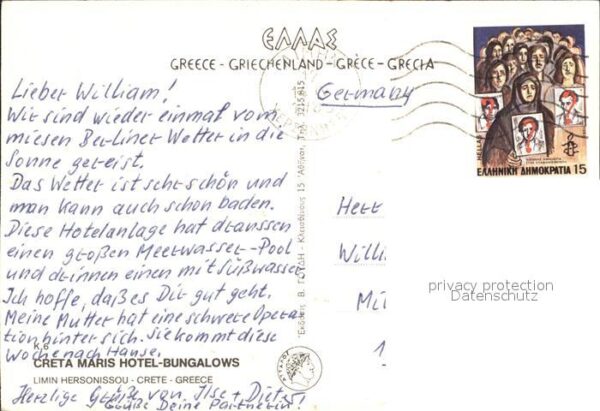 ΕΛΛΑΣ
GREECE - GRIECHENLAND - GRÈCE - GRECIA
Lieber William!
Wir sind wieder einmal vom
miesen Berliner Wetter in die
Sonne gereist.
Das Wetter ist sehr schön und
man kann auch schon baden.
Diese Hotelanlage hat draussen
einen großen Meerwasser-Pool
und drinnen einen mit Süßwasser
Ich hoffe, daß es Dir gut geht.
Meine Mutter hat eine schwere Opera
tion hinter sich. Sie kommt diese
Woche nach Hause.
Herzliche Grüße von Ilse + Dieter
Grüße Deine Partnerin!
K.6
CRETA MARIS HOTEL-BUNGALOWS
LIMIN HERSONISSOU - CRETE - GREECE
Κλεισθένους 15 Ἀθῆναι, Τηλ. 3215 815
Germany
Herr
Willi
Mi
1
HELLAS
ΕΛΛΗΝΙΚΗ ΔΗΜΟΚΡΑΤΙΑ 15
privacy protection
Datenschutz